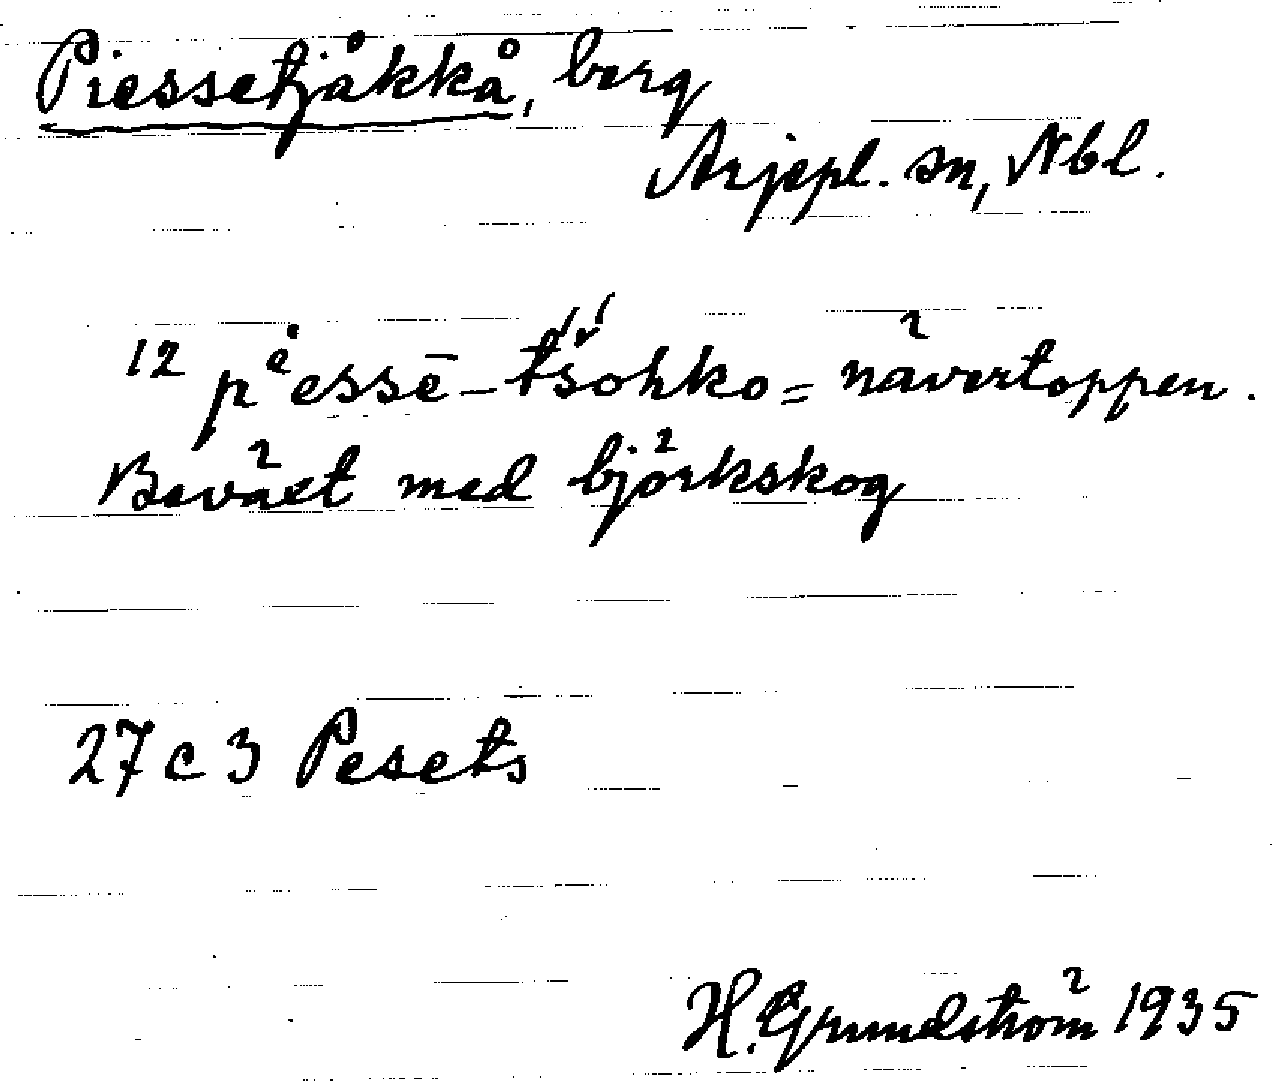 Piessetjåkkå, berg
Arjepl. sn, Nbl.
12 pė̀essē-t́š́ohko = nävertoppen.
Beväxt med björkskog
27 c 3 Pesets
H. Grundström 1935